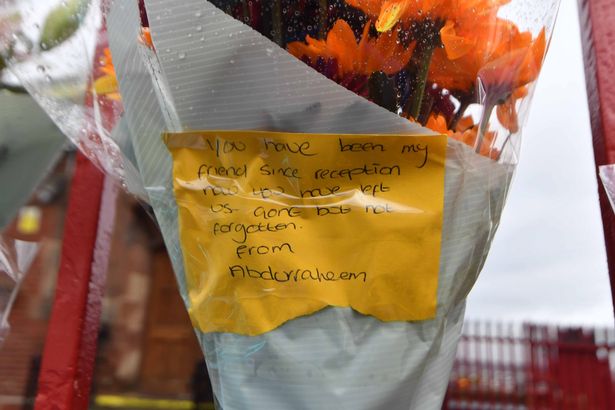 You have been my
friend since reception
now you have left
us. Gone but not
forgotten.
From
Abdurraheem